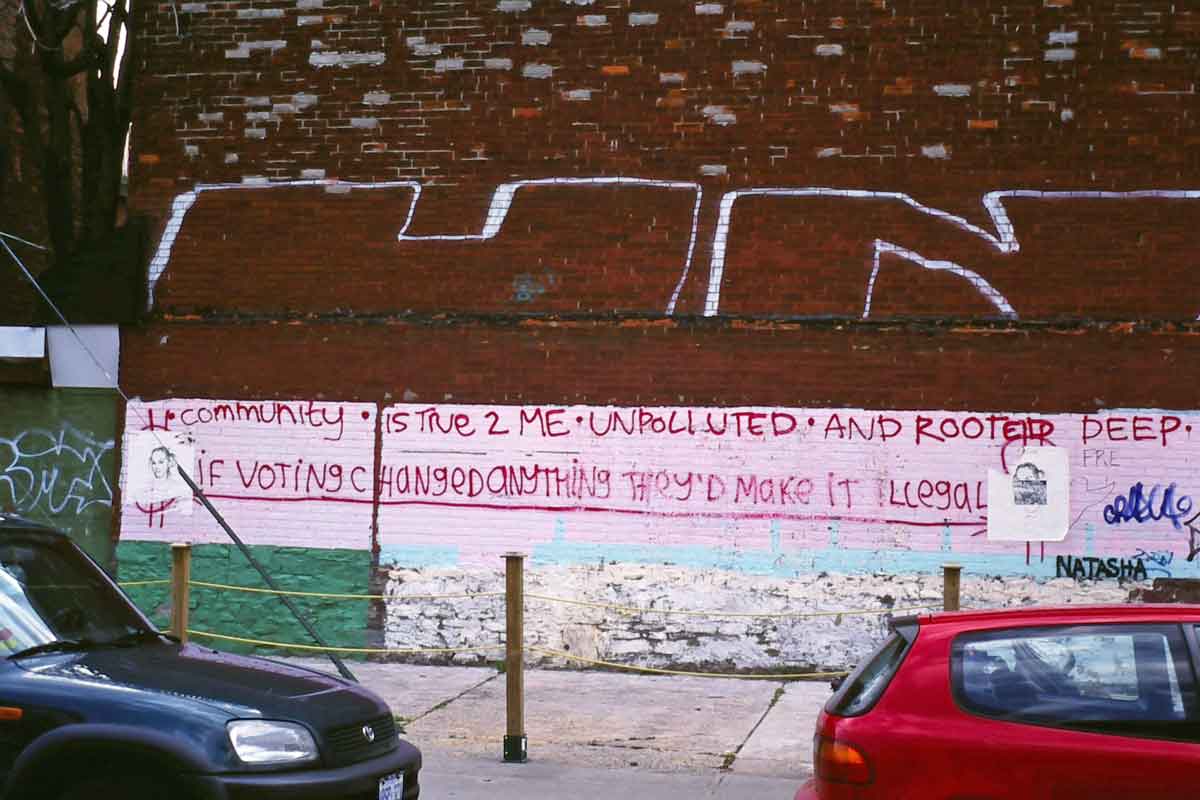 • community • is True 2 ME • UNPOLLUTED • AND ROOTED DEEP •
iF VOTiNG CHANGED ANYTHING THEY'D MAKE IT iLLEGAL
FRE
NATASHA